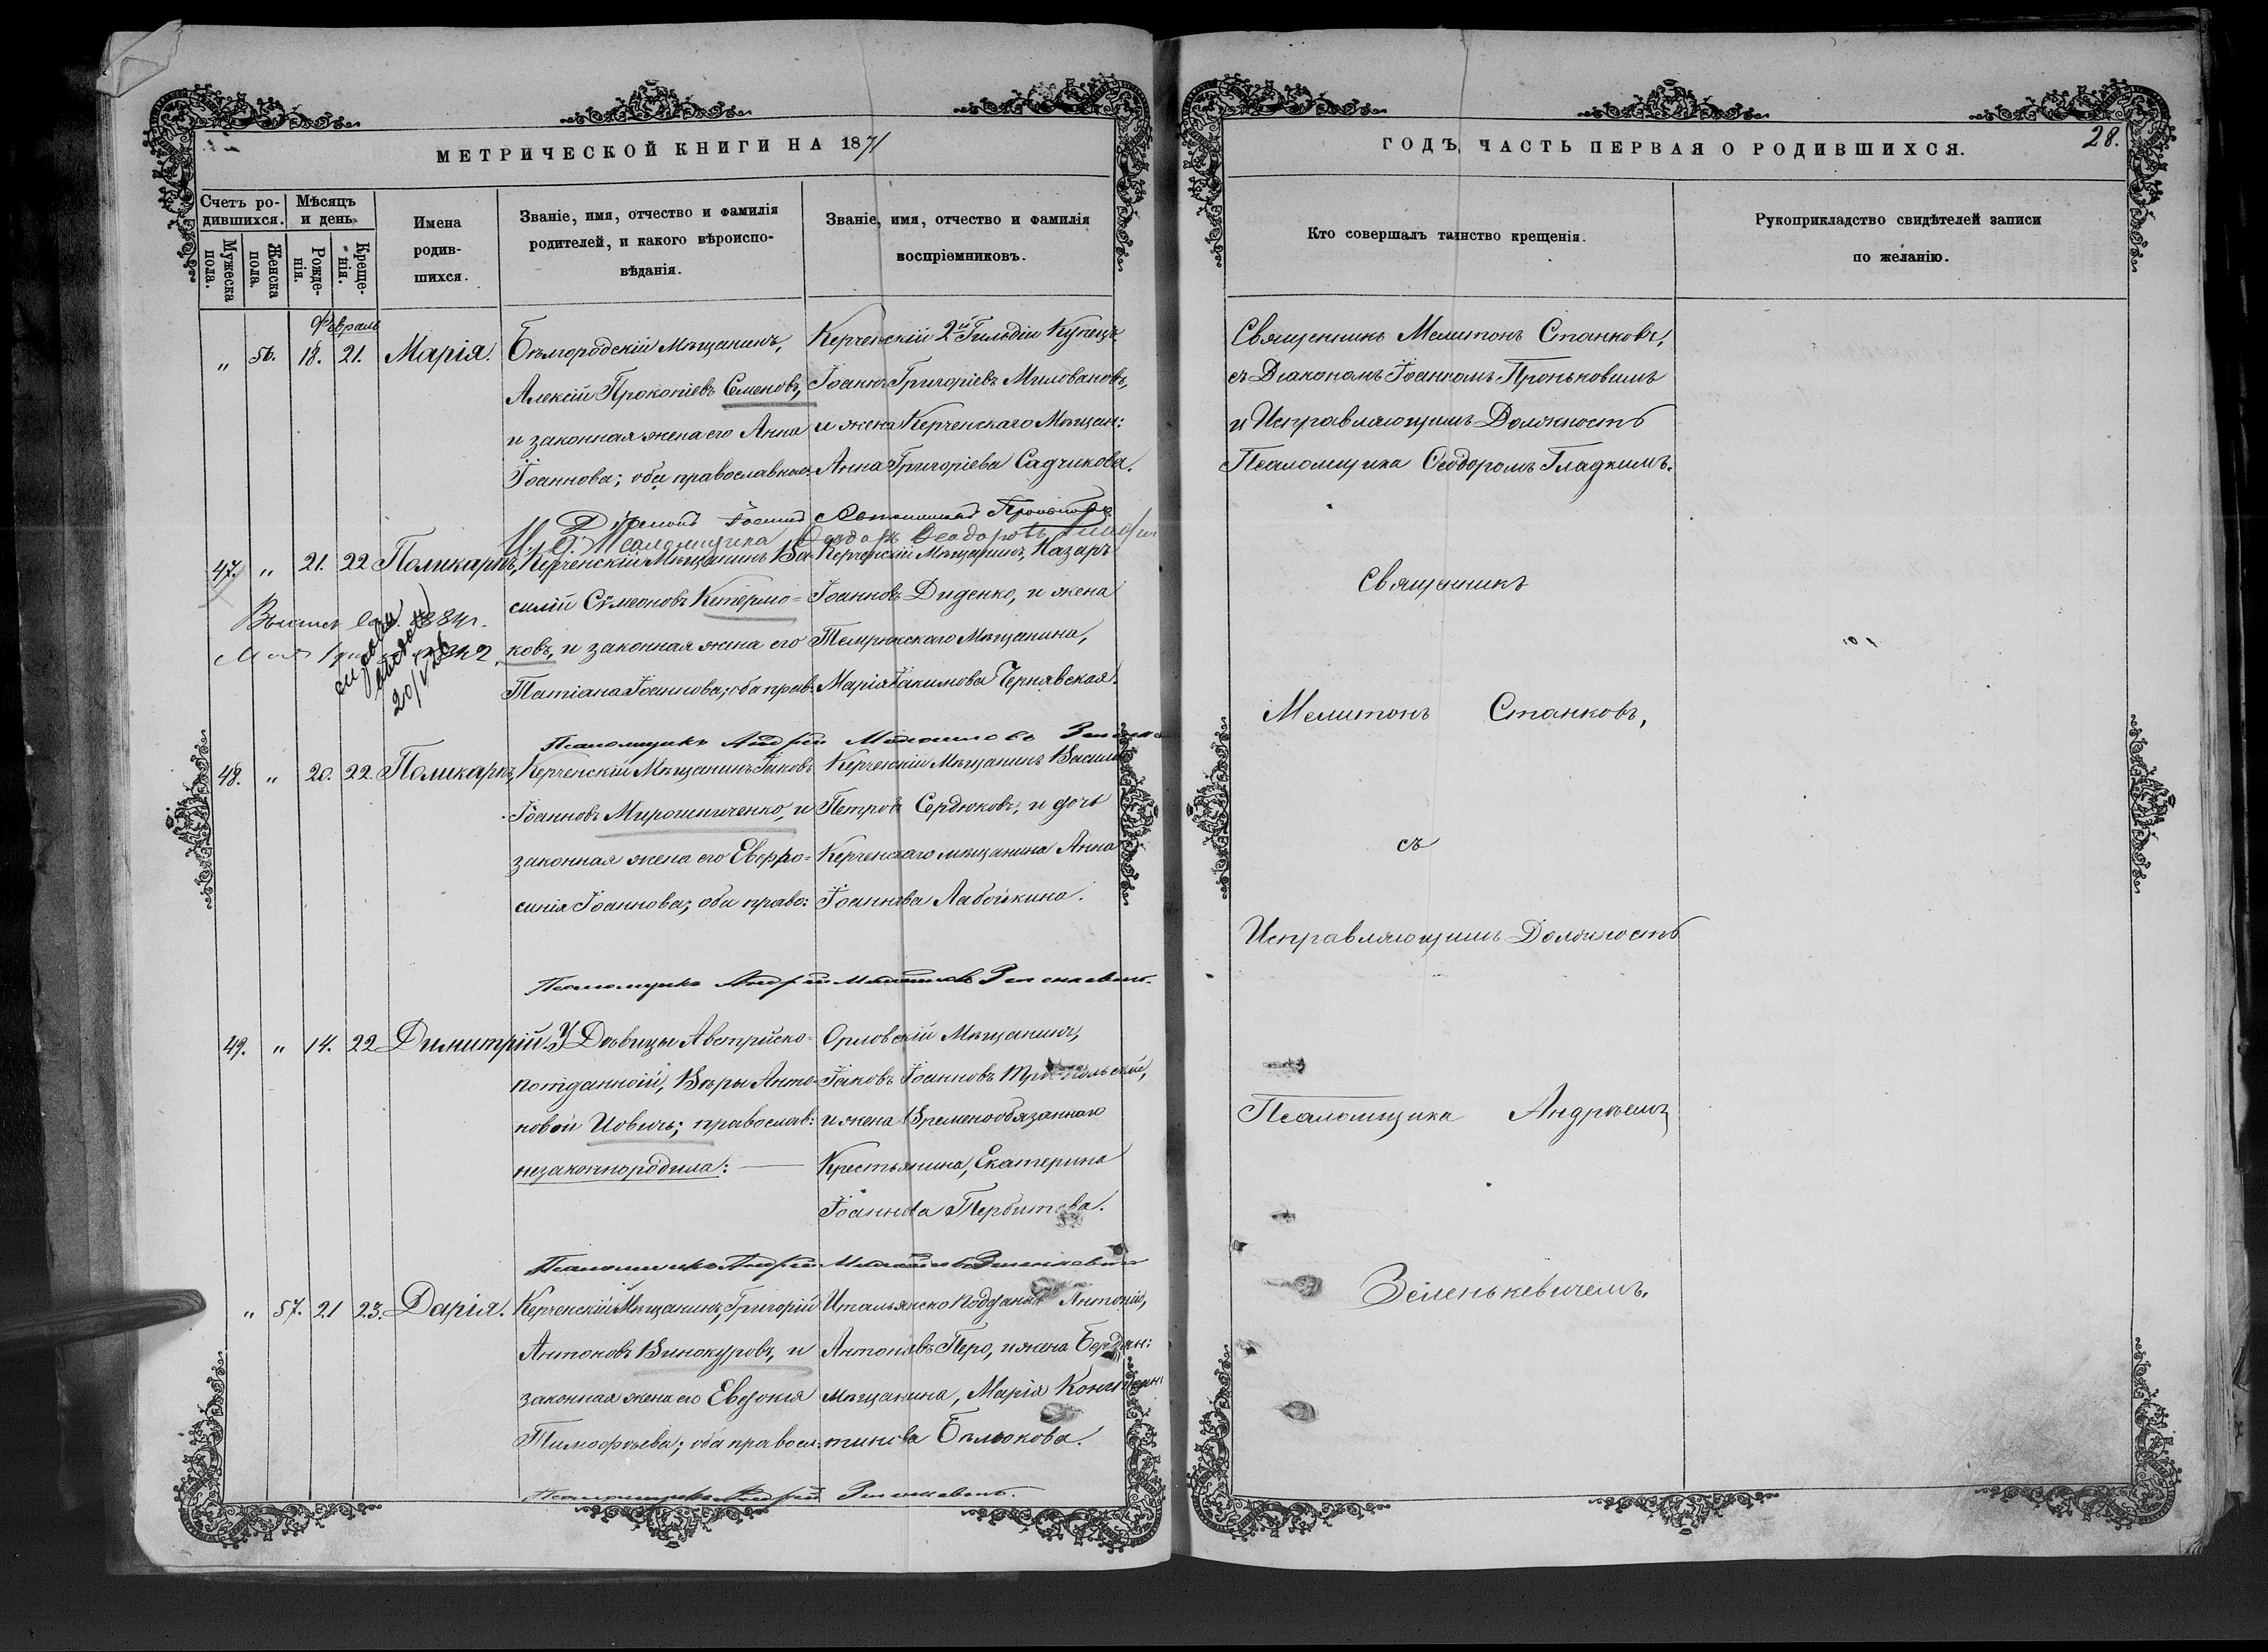 МЕТРИЧЕСКОЙ КНИГИ НА 1871
Счетъ родившихся.
Мужеска пола.
Женска пола.
Мѣсяцъ и день.
Рожде-нія.
Креще-нія.
Имена родив-шихся.
Званіе, имя, отчество и фамилія
родителей, и какого вѣроиспо-
вѣданія.
Званіе, имя, отчество и фамилія
воспріемниковъ.
Февраль
" 56. 18. 21. Марія.
Бѣлгородскій Мѣщанинъ,
Алексій Прокопіевъ Семеновъ,
и законная жена его Анна
Іоаннова; оба православные.
Керченскій 2й Гильдіи Купецъ
Іоаннъ Григоріевъ Миловановъ,
и жена Керченскаго Мѣщан:
Анна Григоріева Садчикова.
И. д. Псаломщика Ѳеодоръ
47. " 21. 22 Поликарпъ,
Керченскій Мѣщанинъ Ва-
силій Сѵмеоновъ Кетермо-
ковъ, и законная жена его
Татіана Іоаннова; оба прав:
Керченскій Мѣщанинъ, Назаръ
Іоанновъ Диденко, и жена
Темрюкскаго Мѣщанина,
Марія Іакимова Чернявская.
1884 г.
Псаломщикъ Андрей
48. " 20. 22. Поликарпъ,
Керченскій Мѣщанинъ Іаковъ
Іоанновъ Мирошниченко, и
законная жена его Евфро-
синія Іоаннова; оба право:
Керченскій Мѣщанинъ Василій
Петровъ Сердюковъ, и дочь
Керченскаго мѣщанина Анна
Іоаннова Лабойкина.
Псаломщикъ Андрей
49. " 14. 22 Димитрій
У Дѣвицы Австрійско-
потданной, Вѣры Анто-
новой Иовичъ; православ:
незаконнородила:
Орловскій Мѣщанинъ,
Іаковъ Іоанновъ
и жена Временообязаннаго
Крестьянина, Екатерина
Іоаннова Тербитова.
Псаломщикъ Андрей
" 57. 21 23. Дарія.
Керченскій Мѣщанинъ, Григорій
Антоновъ Винокуровъ, и
законная жена его Евдокія
Тимофѣева; оба правосл:
Итальянско подданый Антоній,
Антоновъ Перо, и жена Бердян:
мѣщанина, Марія Констан-
тинова Бѣлокова.
Псаломщикъ Андрей
ГОДЪ, ЧАСТЬ ПЕРВАЯ О РОДИВШИХСЯ.
28.
Кто совершалъ таинство крещенія.
Рукоприкладство свидѣтелей записи
по желанію.
Священникъ Мелитонъ Станковъ,
съ Діакономъ Іоанномъ Проньковимъ
и Исправляющимъ Должность
Псаломщика Ѳеодоромъ Гладкимъ.
Священникъ
Мелитонъ Станковъ,
съ
Исправляющимъ Должность
Псаломщика Андреемъ
Зеленькевичемъ.